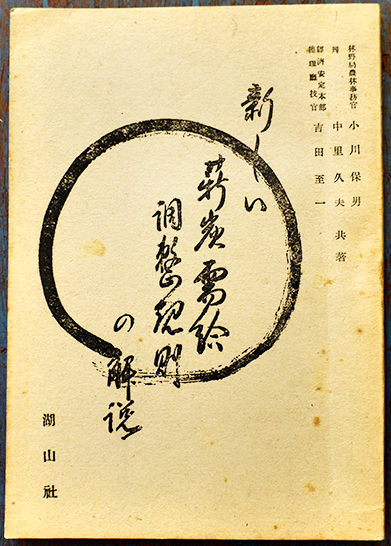 林野局農林事務官 小川保男
同 中里久夫 共著
経済安定本部
物価廳技官 吉田至一
新しい
薪炭需給
調整規則
の解説
湖山社